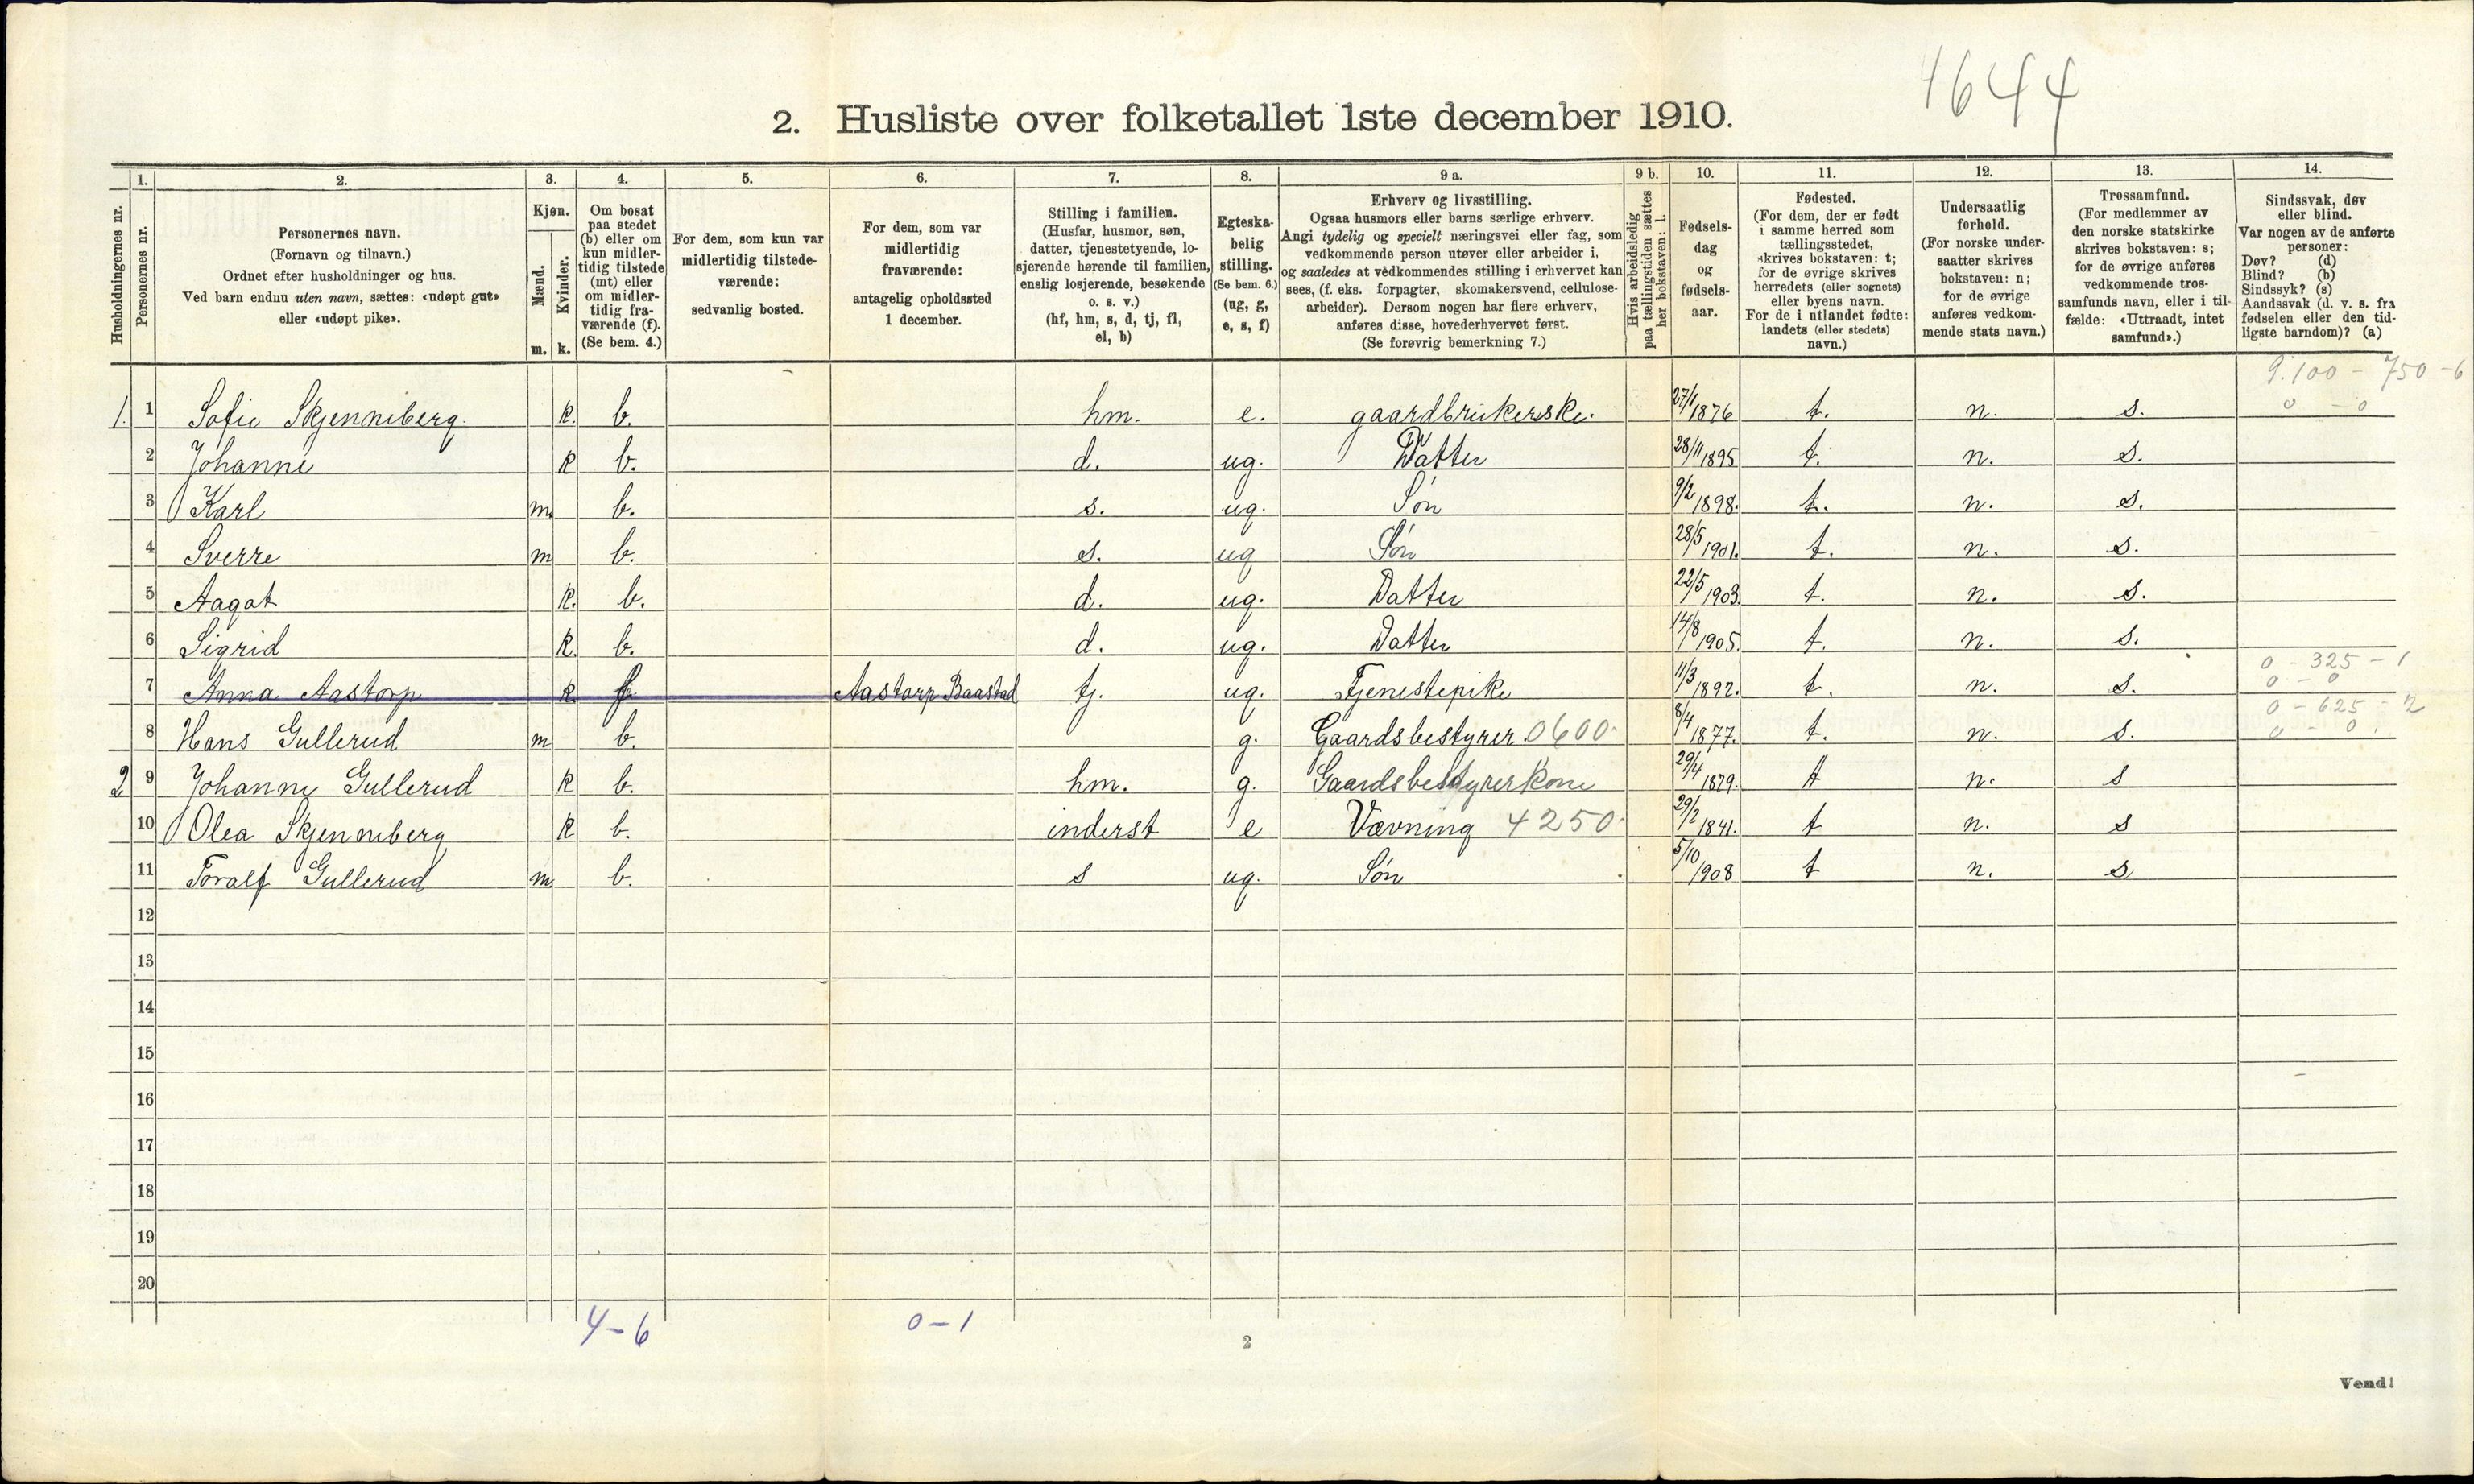 4644
2. Husliste over folketallet 1ste december 1910.
Husholdningernes nr.
1.
Personernes nr.
2.
Personernes navn.
(Fornavn og tilnavn.)
Ordnet efter husholdninger og hus.
Ved barn endnu uten navn, sættes: «udøpt gut»
eller «udøpt pike».
3.
Kjøn.
Mænd.
Kvinder.
m. k.
4.
Om bosat
paa stedet
(b) eller om
kun midler-
tidig tilstede
(mt) eller
om midler-
tidig fra-
værende (f).
(Se bem. 4.)
5.
For dem, som kun var
midlertidig tilstede-
værende:
sedvanlig bosted.
6.
For dem, som var
midlertidig
fraværende:
antagelig opholdssted
1 december.
7.
Stilling i familien.
(Husfar, husmor, søn,
datter, tjenestetyende, lo-
sjerende hørende til familien,
enslig losjerende, besøkende
o. s. v.)
(hf, hm, s, d, tj, fl,
el, b)
8.
Egteska-
belig
stilling.
(Se bem. 6.)
(ug, g,
e, s, f)
9 a.
Erhverv og livsstilling.
Ogsaa husmors eller barns særlige erhverv.
Angi tydelig og specielt næringsvei eller fag, som
vedkommende person utøver eller arbeider i,
og saaledes at vedkommendes stilling i erhvervet kan
sees, (f. eks. forpagter, skomakersvend, cellulose-
arbeider). Dersom nogen har flere erhverv,
anføres disse, hovederhvervet først.
(Se forøvrig bemerkning 7.)
9 b.
Hvis arbeidsledig
paa tællingstiden sættes
her bokstaven: l.
10.
Fødsels-
dag
og
fødsels-
aar.
11.
Fødested.
(For dem, der er født
i samme herred som
tællingsstedet,
skrives bokstaven: t;
for de øvrige skrives
herredets (eller sognets)
eller byens navn.
For de i utlandet fødte:
landets (eller stedets)
navn.)
12.
Undersaatlig
forhold.
(For norske under-
saatter skrives
bokstaven: n;
for de øvrige
anføres vedkom-
mende stats navn.)
13.
Trossamfund.
(For medlemmer av
den norske statskirke
skrives bokstaven: s;
for de øvrige anføres
vedkommende tros-
samfunds navn, eller i til-
fælde: «Uttraadt, intet
samfund».)
14.
Sindssvak, døv
eller blind.
Var nogen av de anførte
personer:
Døv? (d)
Blind? (b)
Sindssyk? (s)
Aandssvak (d. v. s. fra
fødselen eller den tid-
ligste barndom)? (a)
9.100 - 750 - 6
1. 1 Sofie Skjenneberg. k. b. hm. e. gaardbrukerske. 27/1 1876 t. n. s. 0 - 0
2 Johanne k b. d. ug. Datter 28/11 1895 t. n. s.
3 Karl m. b. s. ug. Søn 9/2 1898. t. n. s.
4 Sverre m b. s. ug Søn 28/5 1901. t. n. s.
5 Aagot k. b. d. ug. Datter 22/5 1903. t. n. s.
6 Sigrid k. b. d. ug. Datter 14/8 1905. t. n. s.
0 - 325 - 1
7 Anna Aastorp k. f Aastorp Baastad tj. ug. Tjenestepike 11/3 1892. t. n. s. 0 - 0
0 - 625 - 2
8 Hans Gullerud m b. g. Gaardsbestyrer 0600 8/4 1877. t. n. s. 0 - 0.
2 9 Johanne Gullerud k b. hm. g. Gaardsbestyrerkone 29/4 1879. t n. s
10 Olea Skjenneberg k b. inderst e Vævning 4250 29/2 1841. t n. s
11 Toralf Gullerud m. b. s ug. Søn 5/10 1908 t n. s
12
13
14
15
16
17
18
19
20
4-6 0-1
2
Vend!